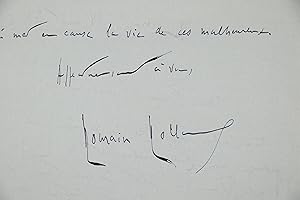 met en cause la vie de ces malheureux.
Affectueusement à vous,
Romain Rolland